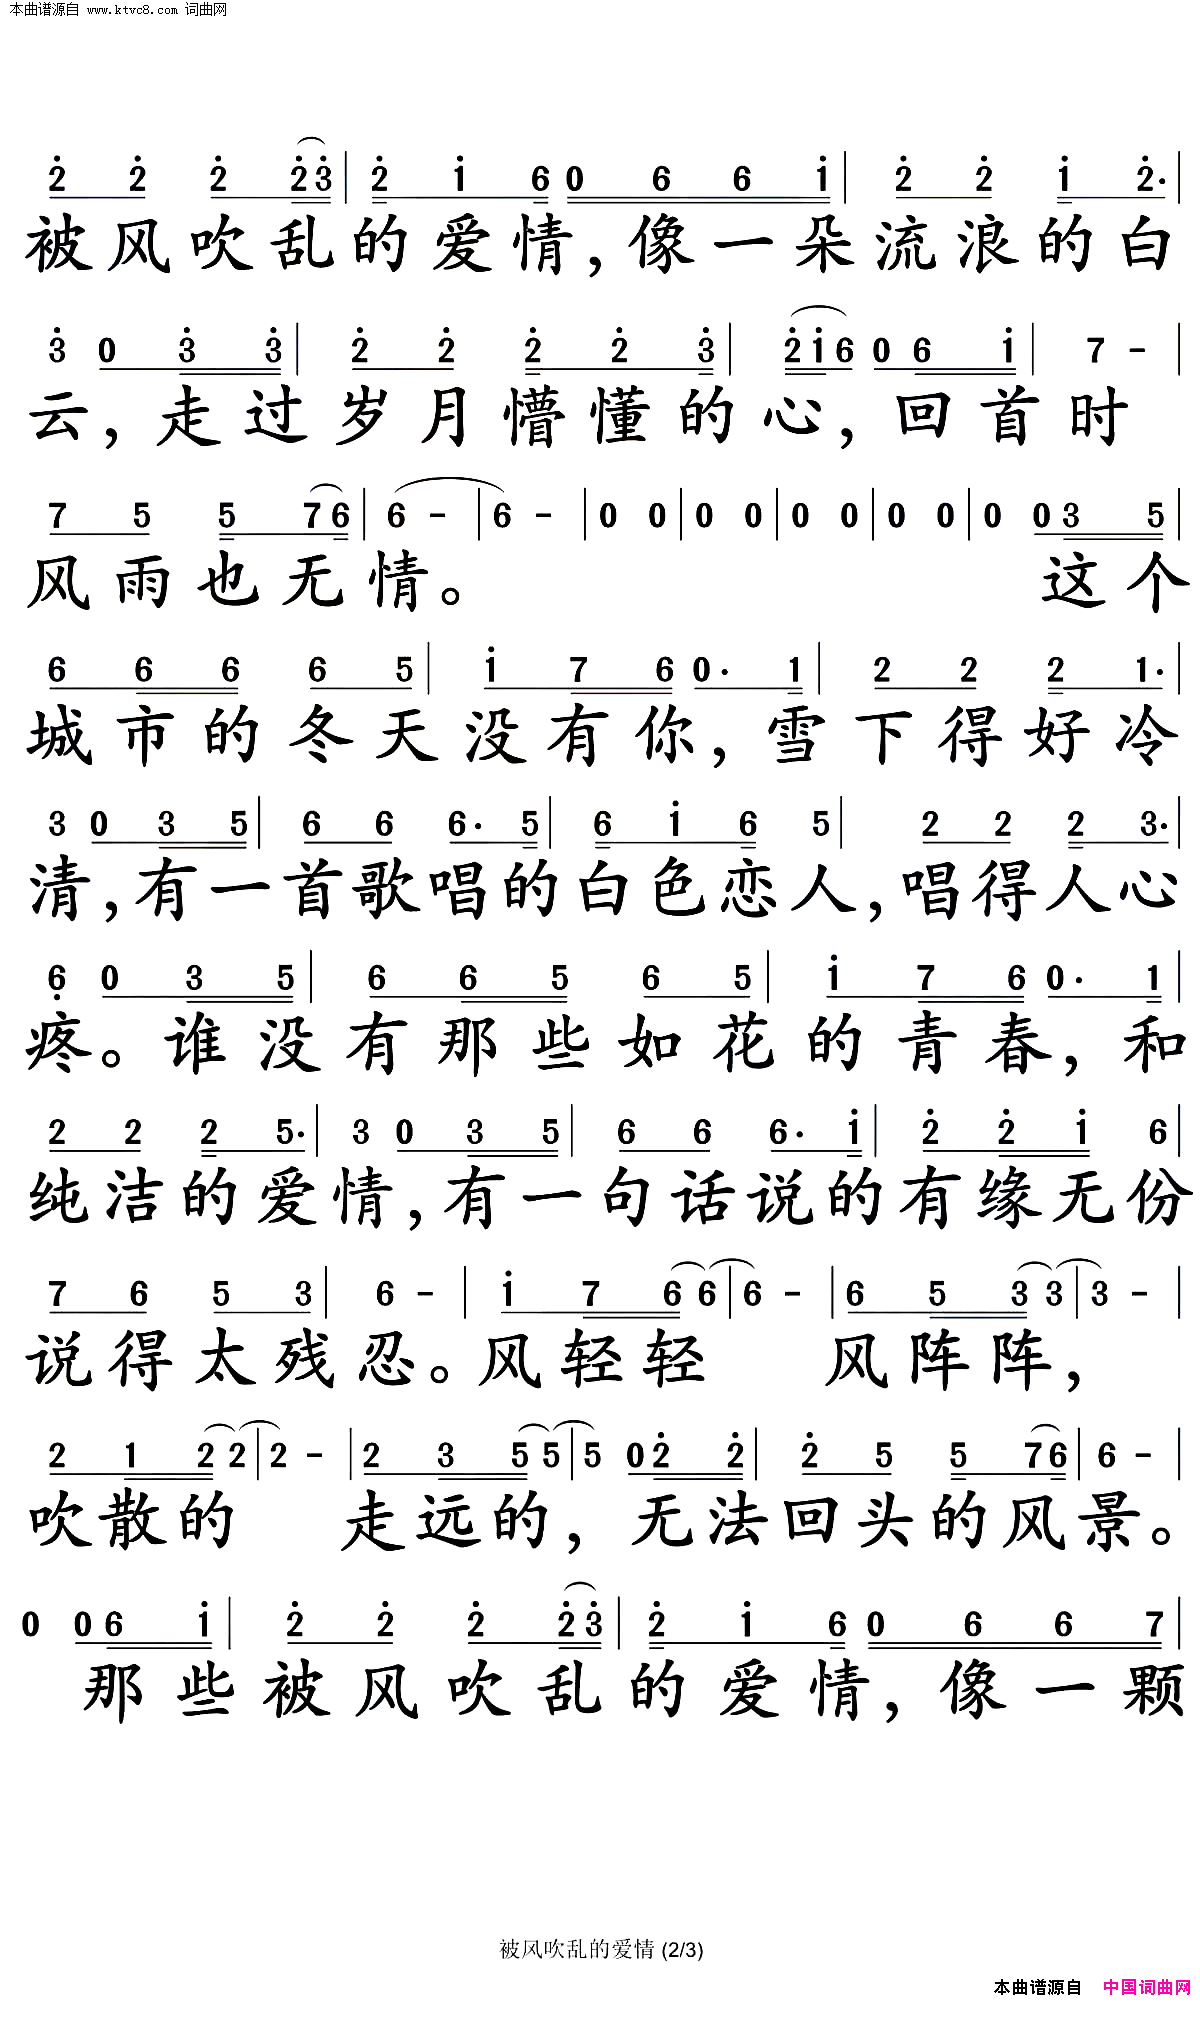 本曲谱源自 www.ktvc8.com 词曲网
2 2 2 23 | 2 1 6 0 6 6 1 | 2 2 1 2. |
被风吹乱的爱情，像一朵流浪的白
3 0 3 3 | 2 2 2 2 3 | 2 1 6 0 6 1 | 7 - |
云，走过岁月懵懂的心，回首时
7 5 5 76 | 6 - | 6 - | 0 0 | 0 0 | 0 0 | 0 0 | 0 0 3 5 |
风雨也无情。 这个
6 6 6 6 5 | 1 7 6 0. 1 | 2 2 2 1. |
城市的冬天没有你，雪下得好冷
3 0 3 5 | 6 6 6. 5 | 6 1 6 5 | 2 2 2 3. |
清，有一首歌唱的白色恋人，唱得人心
6 0 3 5 | 6 6 5 6 5 | 1 7 6 0. 1 |
疼。谁没有那些如花的青春，和
2 2 2 5. | 3 0 3 5 | 6 6 6. 1 | 2 2 1 6 |
纯洁的爱情，有一句话说的有缘无份
7 6 5 3 | 6 - | 1 7 6 6 | 6 - | 6 5 3 3 | 3 - |
说得太残忍。风轻轻 风阵阵，
2 1 2 2 | 2 - | 2 3 5 5 | 5 0 2 2 | 2 5 5 76 | 6 - |
吹散的 走远的，无法回头的风景。
0 0 6 1 | 2 2 2 23 | 2 1 6 0 6 6 7 |
那些被风吹乱的爱情，像一颗
被风吹乱的爱情 (2/3)
本曲谱源自 中国词曲网